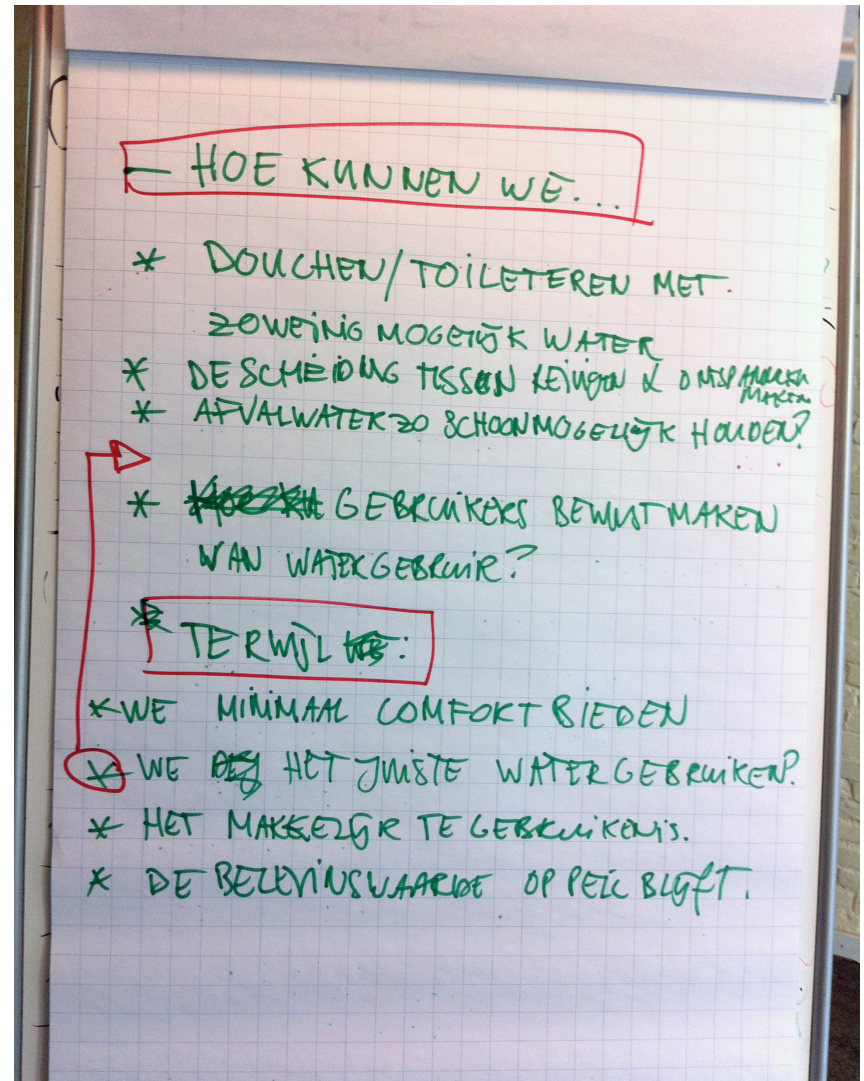 — HOE KUNNEN WE...
* DOUCHEN/TOILETEREN MET
ZOWEINIG MOGELIJK WATER
* DE SCHEIDING TUSSEN REINIGEN & ONTSPANNEN
MAKEN
* AFVALWATER ZO SCHOON MOGELIJK HOUDEN?
* GEBRUIKERS BEWUST MAKEN
VAN WATERGEBRUIK?
* TERWIJL :
* WE MINIMAAL COMFORT BIEDEN
* WE HET JUISTE WATER GEBRUIKEN?
* HET MAKKELIJK TE GEBRUIKEN IS.
* DE BELEVINSWAARDE OP PEIL BLIJFT.